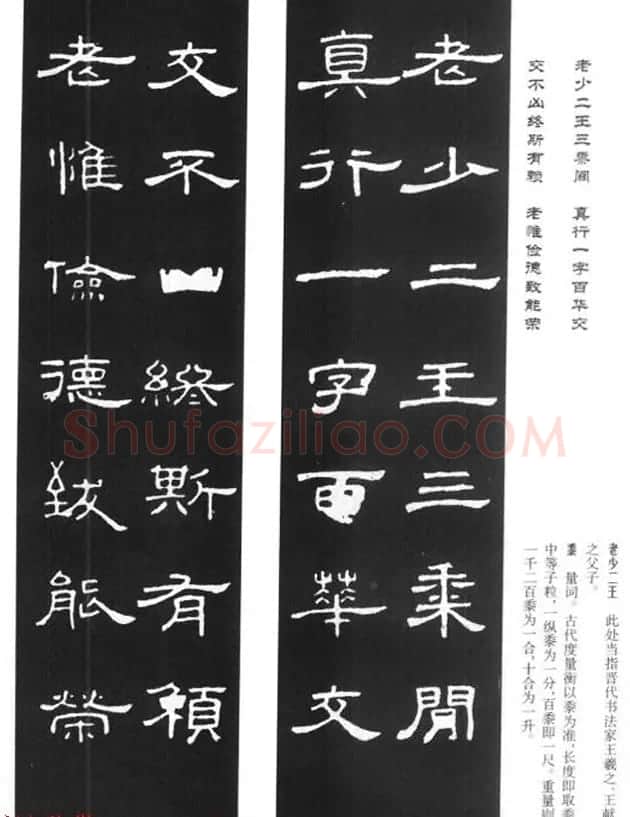 老少二王三黍间 真行一字百华交
交不凶终斯有赖 老惟俭德致能荣
老少二王 此处当指晋代书法家王羲之、王献
之父子。
黍 量词。古代度量衡以黍为准,长度即取黍
中等子粒,一纵黍为一分,百黍即一尺。重量则
一千二百黍为一合,十合为一升。
老少二王三黍閒
真行一字百華交
交不凶終斯有賴
老惟儉德致能榮
Shufaziliao.COM